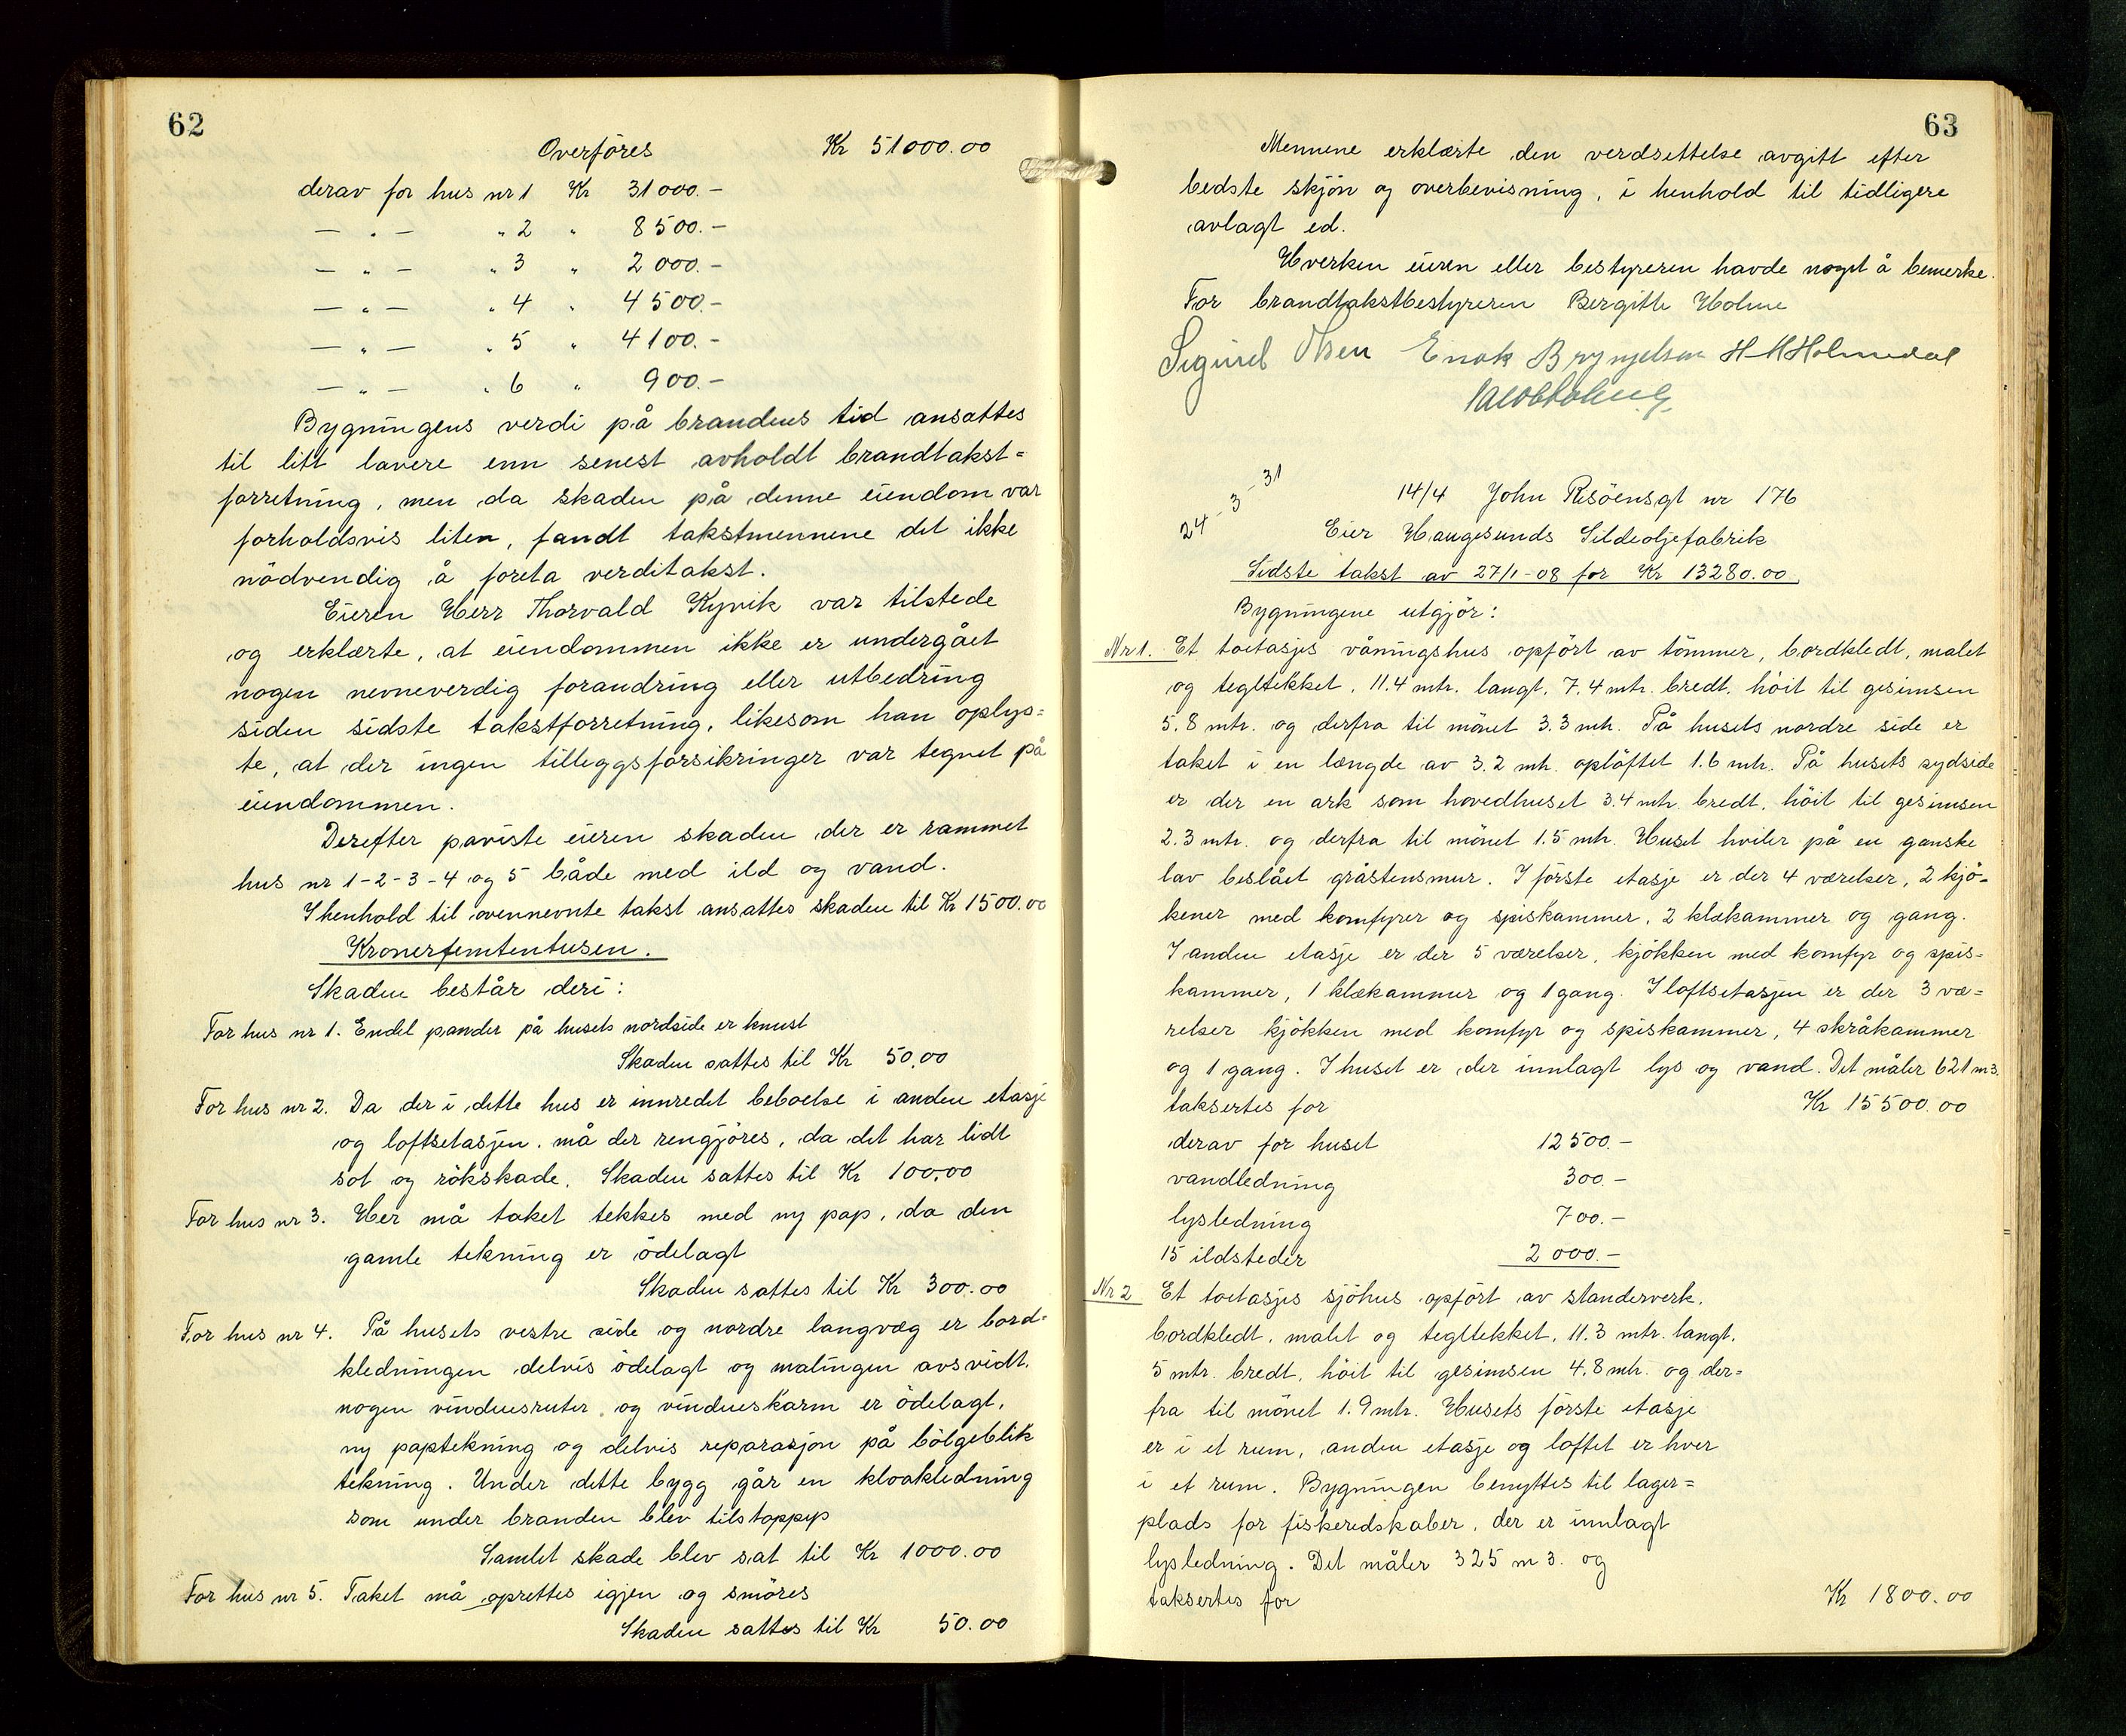 62
Overföres Kr 51000.00
derav for hus nr 1 Kr 31000.-
— " — " 2 " 8500.-
— " — " 3 " 2000.-
— " — " 4 " 4500.-
— " — " 5 " 4100.-
— " — " 6 " 900.-
Bygningens verdi på brandens tid ansattes
til litt lavere enn senest avholdt brandtakst=
forretning, men da skaden på denne eiendom var
forholdsvis liten, fandt takstmennene det ikke
nödvendig å foreta verditakst.
Eieren Herr Thorvald Kyvik var tilstede
og erklærte, at eiendommen ikke er undergået
nogen nevneverdig forandring eller utbedring
siden sidste takstforretning, likesom han oplys=
te, at der ingen tilleggsforsikringer var tegnet på
eiendommen.
Derefter paviste eieren skaden der er rammet
hus nr 1-2-3-4 og 5 både med ild og vand.
I henhold til ovennevnte takst ansattes skaden til Kr 1500.00
Kronerfemtentusen.
Skaden består deri:
For hus nr 1. Endel pander på husets nordside er knust
Skaden sattes til Kr 50.00
For hus nr 2. Da der i dette hus er innredet beboelse i anden etasje
og loftsetasjen. må der rengjöres, da det har lidt
sot og rökskade. Skaden sattes til Kr 100.00
For hus nr 3. Her må taket tekkes med ny pap, da den
gamle tekning er ödelagt
Skaden sattes til Kr 300.00
For hus nr 4. På husets vestre side og nordre langvæg er bord=
kledningen delvis ödelagt og malingen avsvidt.
nogen vinduesruter og vindueskarm er ödelagt,
ny paptekning og delvis reparasjon på bölgeblik
tekning. Under dette bygg går en kloakledning
som under branden blev tilstoppyp
Samlet skade blev sat til Kr 1000.00
For hus nr 5. Taket må oprettes igjen og smöres
Skaden sattes til Kr 50.00
63
Mennene erklærte den verdsettelse avgitt efter
bedste skjön og overbevisning, i henhold til tidligere
avlagt ed.
Hverken eieren eller bestyreren havde noget å bemerke.
For brandtakstbestyreren Bergitte Holme
Sigurd Olsen Enok Brynjelsen H M Holmedal
24-3-31
14/4 John Risöensgt nr 176
Eier Haugesunds Sildeoljefabrik
Sidste takst av 27/1-08 for Kr 13280.00
Bygningene utgjör:
Nr 1. Et toetasjes våningshus opfört av tömmer, bordkledt, malet
og tegltekket, 11.4 mtr. langt, 7.4 mtr. bredt, höit til gesimsen
5.8 mtr. og derfra til mönet 3.3 mtr. På husets nordre side er
taket i en længde av 3.2 mtr. oplöftet 1.6 mtr. På husets sydside
er der en ark som hovedhuset 3.4 mtr. bredt, höit til gesimsen
2.3 mtr. og derfra til mönet 1.5 mtr. Huset hviler på en ganske
lav beslået gråstensmur. I förste etasje er der 4 værelser, 2 kjö-
kener med komfyrer og spiskammer, 2 klækammer og gang.
I anden etasje er der 5 værelser, kjökken med komfyr og spis-
kammer, 1 klækammer og 1 gang. I loftsetasjen er der 3 væ=
relser kjökken med komfyr og spiskammer, 4 skråkammer
og 1 gang. I huset er der innlagt lys og vand. Det måler 621 m3.
taksertes for Kr 15500.00
derav for huset 12500.-
vandledning 300.-
lysledning 700.-
15 ildsteder 2000.-
Nr 2 Et toetasjes sjöhus opfört av standerverk,
bordkledt, malet og tegltekket, 11.3 mtr. langt,
5 mtr. bredt, höit til gesimsen 4.8 mtr. og der=
fra til mönet 1.9 mtr. Husets förste etasje
er i et rum, anden etasje og loftet er hver
i et rum. Bygningen benyttes til lager=
plads for fiskeredskaber, der er innlagt
lysledning. Det måler 325 m3. og
taksertes for Kr 1800.00